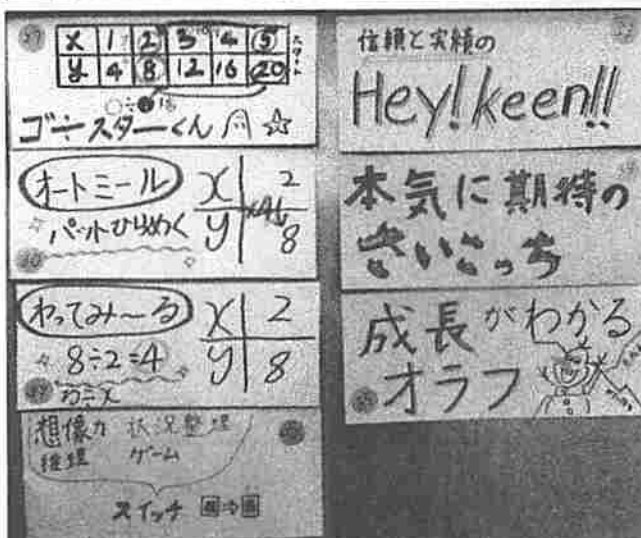 x 1 2 3 4 5
y 4 8 12 16 20
ゴ÷スターくん
オートミール
パットひらめく
x 2
y 8
わってみ〜る
8÷2=4
わ÷x
x 2
y 8
想像力 状況整理
推理 ゲーム
スイッチ
信頼と実績の
Hey!keen!!
本気に期待の
さいこっち
成長がわかる
オラフ